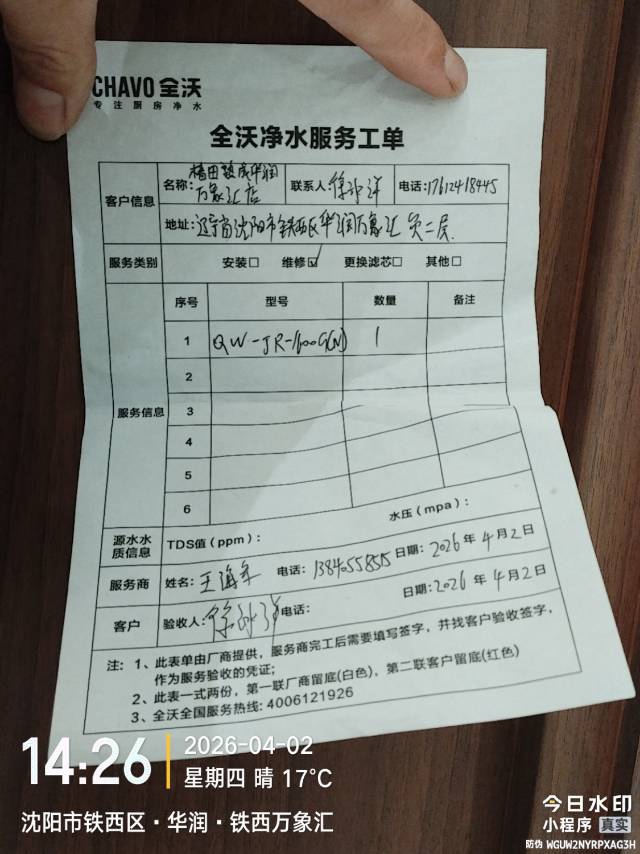 CHAVO 全沃
专注厨房净水
全沃净水服务工单
客户信息
名称: 华润万象汇店
联系人: 徐
电话: 17612418445
地址: 辽宁省沈阳市铁西区华润万象汇 负二层
服务类别 安装□ 维修☑ 更换滤芯□ 其他□
服务信息
序号 型号 数量 备注
1 QW-JR-1600G(N) 1
2
3
4
5
6
源水水质信息
TDS值(ppm): 水压(mpa):
服务商 姓名: 王海军 电话: 1384055855 日期: 2026年4月2日
客户 验收人: 徐 电话: 日期: 2026年4月2日
注: 1、此表单由厂商提供，服务商完工后需要填写签字，并找客户验收签字，
作为服务验收的凭证;
2、此表一式两份，第一联厂商留底(白色)，第二联客户留底(红色)
3、全沃全国服务热线: 4006121926
14:26
2026-04-02
星期四 晴 17℃
沈阳市铁西区·华润·铁西万象汇
今日水印
小程序 真实
防伪 WGUW2NYRPXAG3H